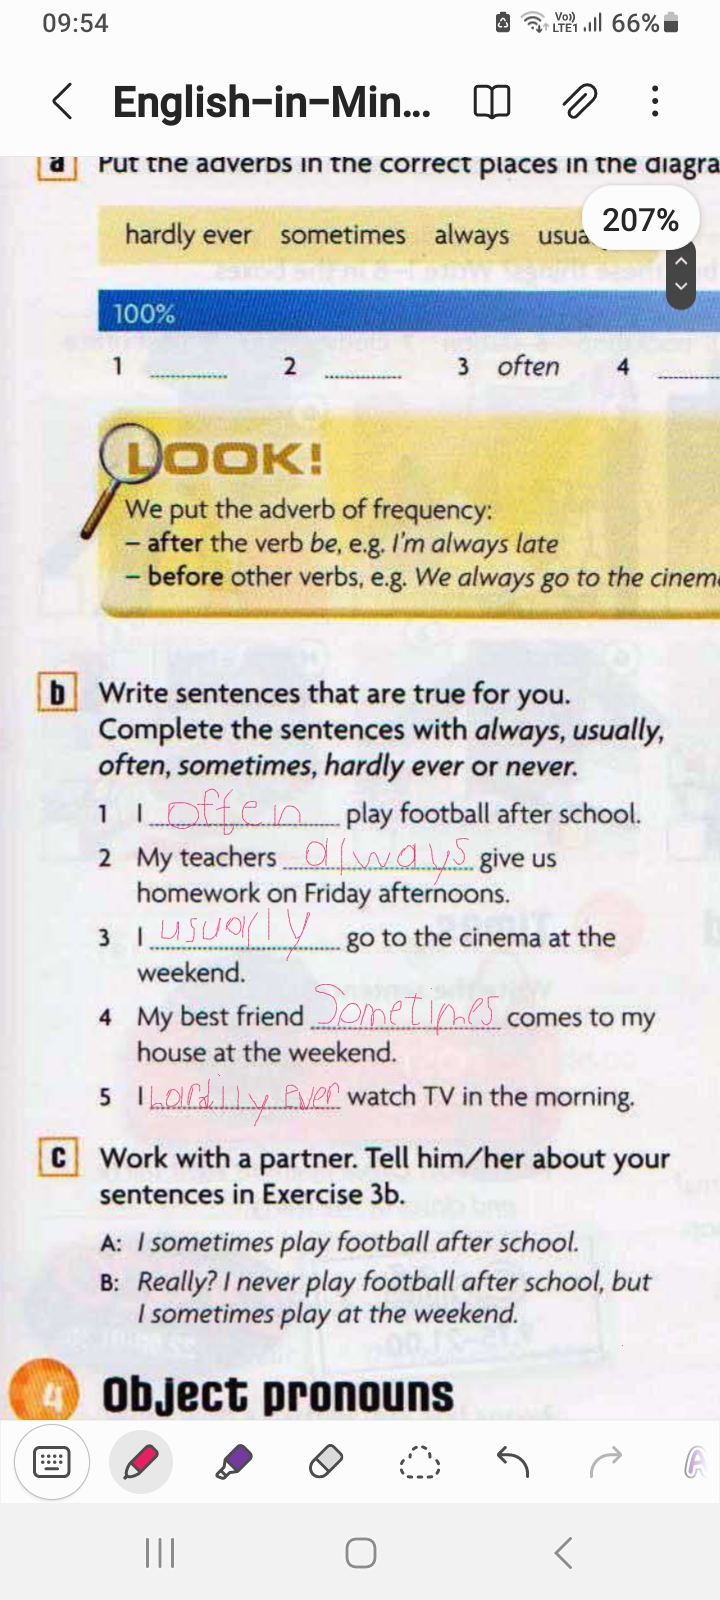 09:54 Vo)) LTE1 66%
English-in-Min...
a Put the adverbs in the correct places in the diagra
hardly ever sometimes always usua
207%
100%
1 2 3 often 4
LOOK!
We put the adverb of frequency:
– after the verb be, e.g. I'm always late
– before other verbs, e.g. We always go to the cinema
b Write sentences that are true for you.
Complete the sentences with always, usually,
often, sometimes, hardly ever or never.
1 I often play football after school.
2 My teachers always give us
homework on Friday afternoons.
3 I usually go to the cinema at the
weekend.
4 My best friend Sometimes comes to my
house at the weekend.
5 I hardily ever watch TV in the morning.
c Work with a partner. Tell him/her about your
sentences in Exercise 3b.
A: I sometimes play football after school.
B: Really? I never play football after school, but
I sometimes play at the weekend.
4 Object pronouns